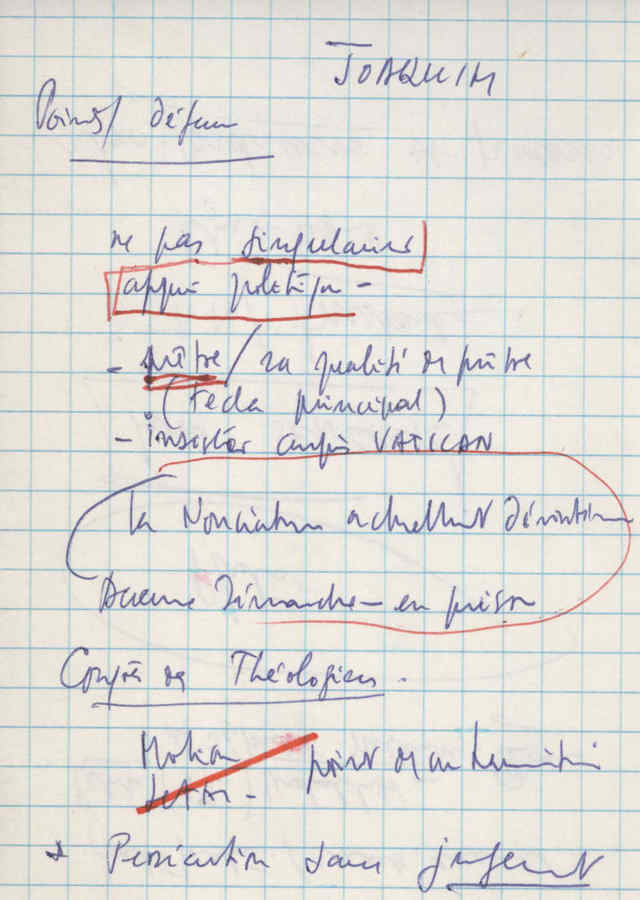 JOAQUIM
Points défense
ne pas singulariser
appui politique -
- prêtre / sa qualité de prêtre
(Fecla principal)
- insister auprès VATICAN
la Nonciature actuellement
Dimanche - en prison
Congrès de Théologiens.
Motion point de
* Persécution sans jugement